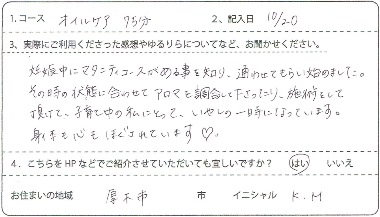 1.コース オイルケア 75分 2、記入日 10/20
3、実際にご利用くださった感想やゆるりらについてなど、お聞かせください。
妊娠中にマタニティコースがある事を知り、通わせてもらい始めました。
その時の状態に合わせてアロマを調合して下さったり、施術をして
頂けて、子育て中の私にとって、いやしの一時になっています。
身も心もほぐれています♡。
4．こちらをHPなどでご紹介させていただいても宜しいですか？ はい いいえ
お住まいの地域 厚木市 市 イニシャル K.M